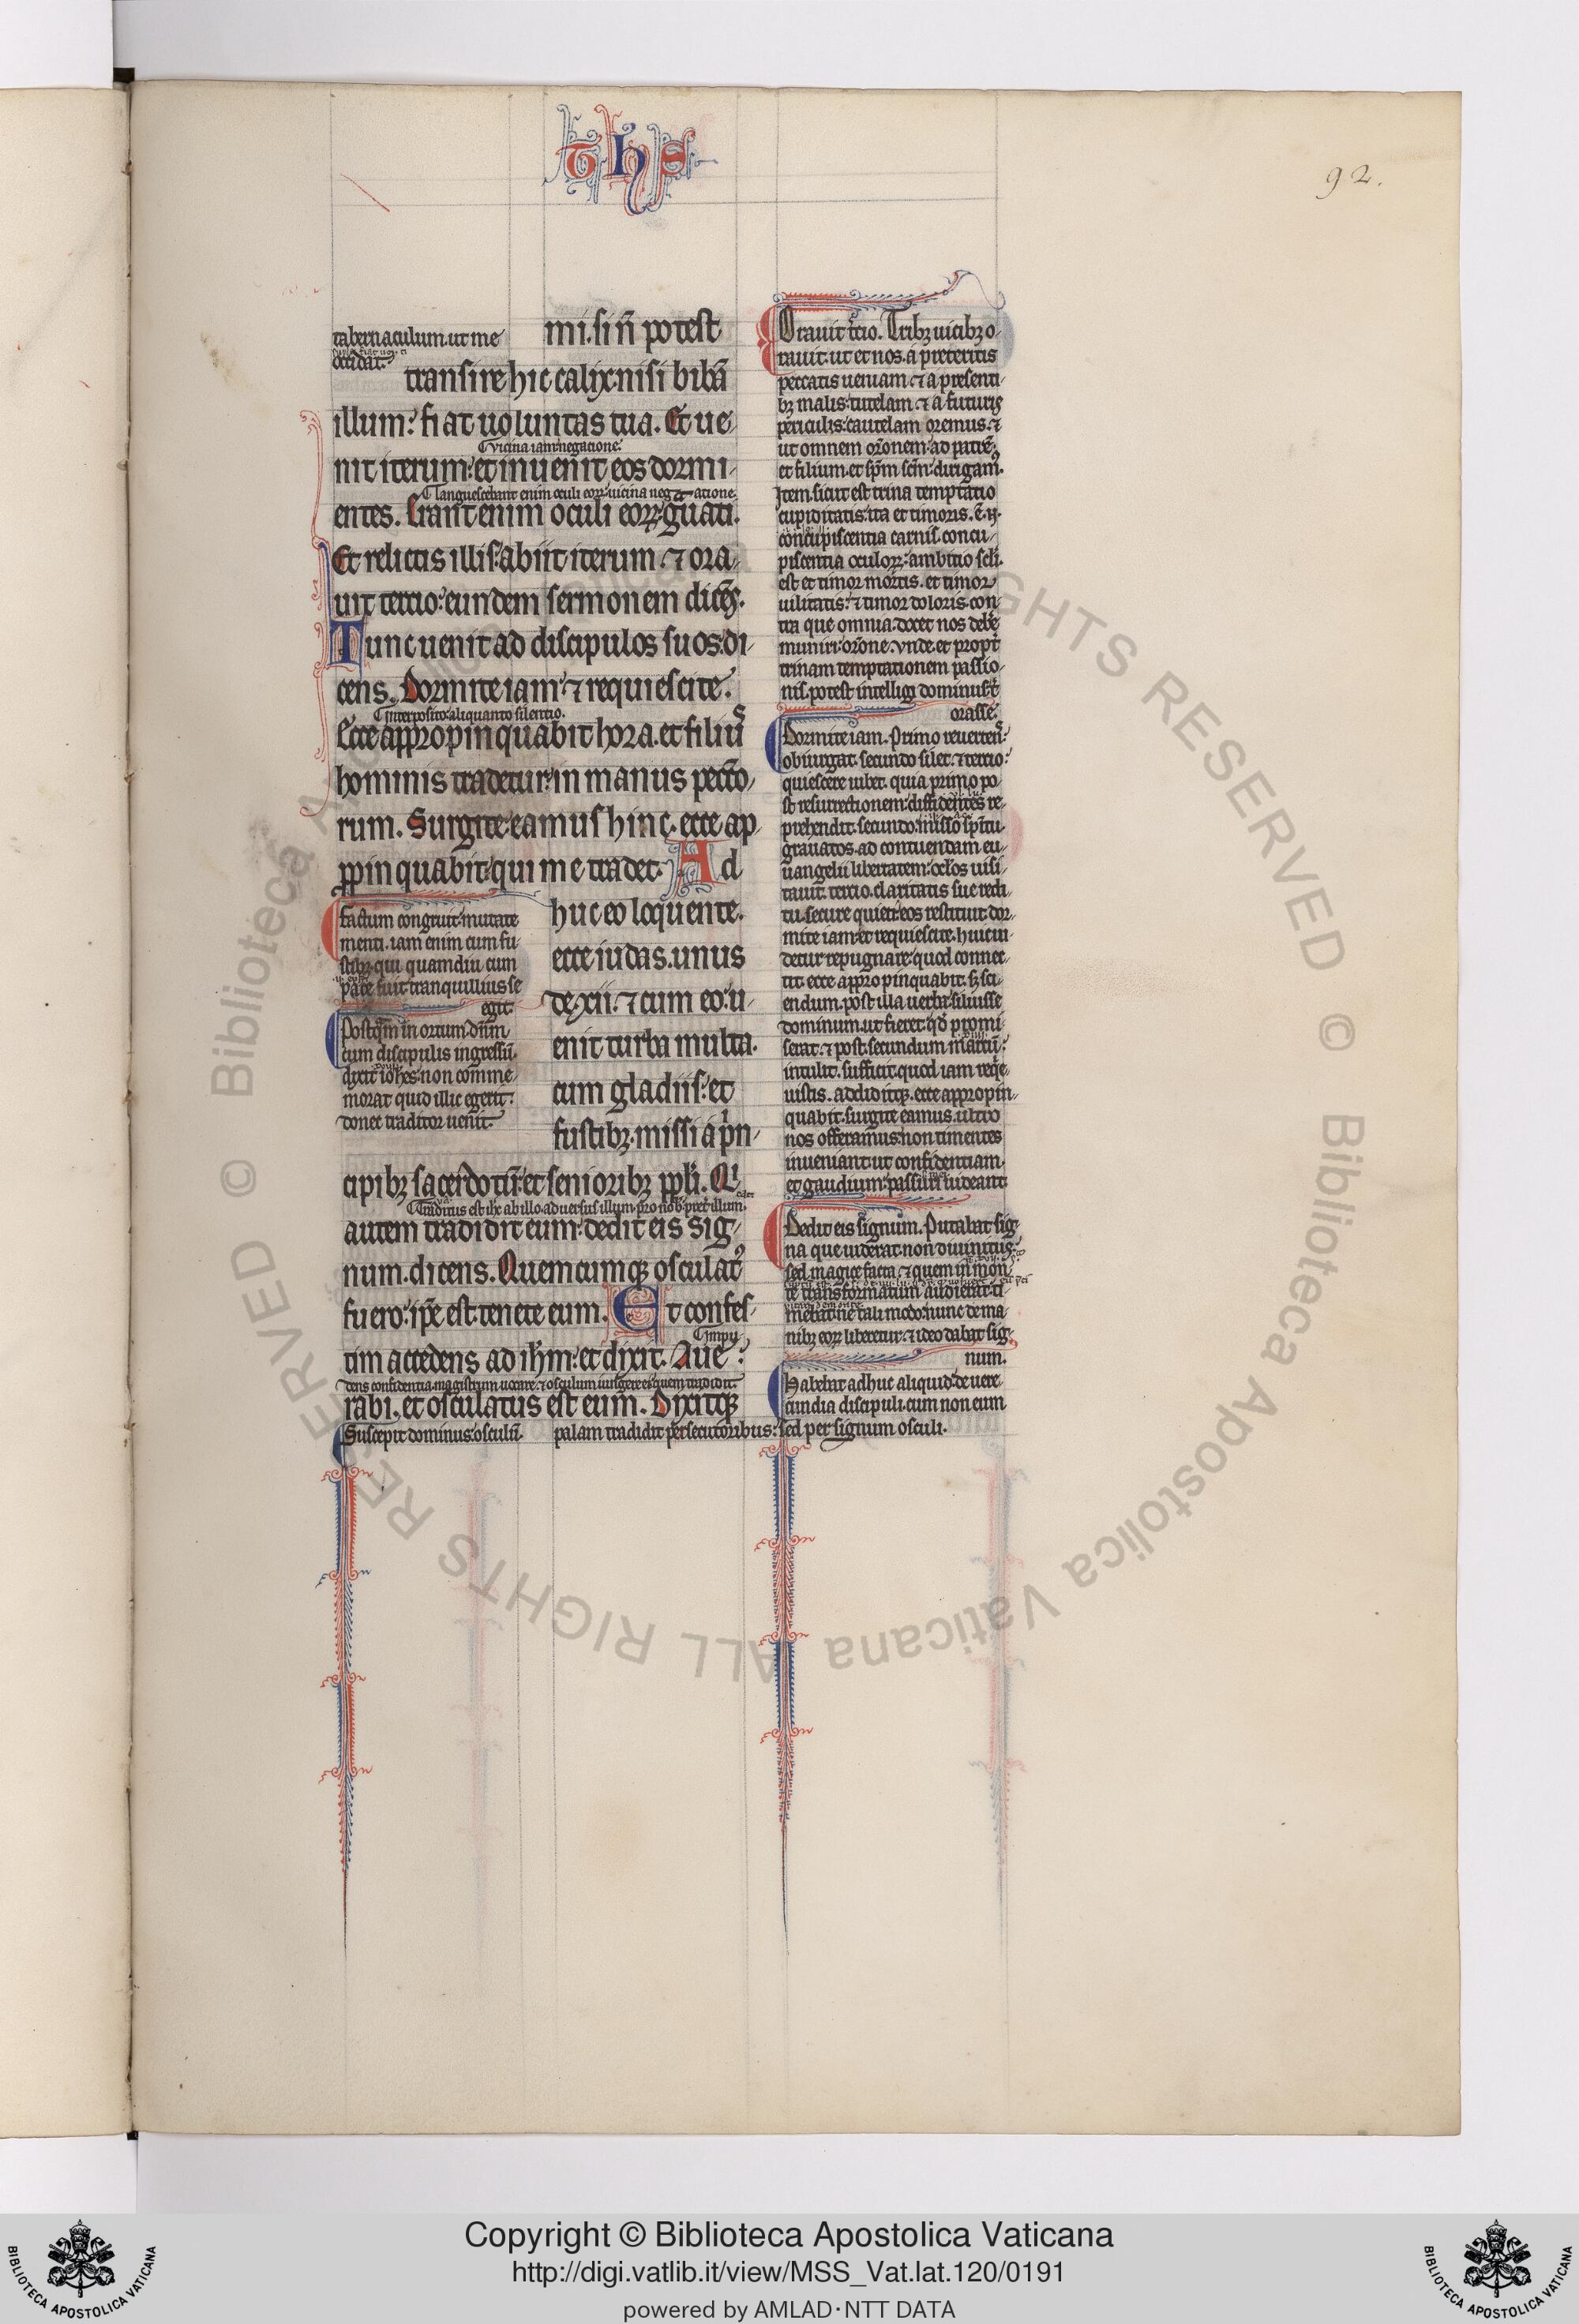 ths
92.
tabernaculum ut me
occidat.
mi. si n̄ potest
transire hic calix nisi bibā
illum: fiat uoluntas tua. Et ue
vicina iam negatione.
nit iterum: et inuenit eos dormi
languescebant enim oculi eoꝝ uicina negatione.
entes. Erant enim oculi eoꝝ g̃uati.
Et relictis illis: abiit iterum ⁊ ora
uit tercio: eundem sermonem dicēs.
Tunc uenit ad discipulos suos: di
cens. Dormite iam ⁊ requiescite.
Interposito aliquanto silentio.
Ecce appropinquabit hora. et filius
hominis tradetur in manus peccato
rum. Surgite eamus hinc. ecce ap
ꝓpinquabit qui me tradet. Ad
huc eo loquente.
ecce iudas. unus
de xii. ⁊ cum eo: u
enit turba multa.
cum gladiis: et
fustibꝫ. missi a p̄n
cipibꝫ sacerdotū: et senioribꝫ ppl̄i. Qi
Traditus est ih̄c ab illo
autem tradidit eum: dedit eis sig
num. dicens. Quemcumqꝫ osculatꝰ
fuero: ip̄e est. tenete eum. Et confes
tim accedens ad ih̄m: et dixit. Aue
impu
dens confidentia. magistrum uocare. ⁊ osculum iungere ei quem tradidit.
rabi. et osculatus est eum. Dixitqꝫ
factum congruit mutate
menti. iam enim cum fu
stibꝫ. qui quamdiu cum
pace fuit tranquillius se
egit.
Postq̄m in ortum dn̄m
cum discipulis ingressū.
dixit ioh̄es: non comme
morat quid illic egerit:
donec traditor uenit.
Suscepit dominus osculū.
palam tradidit persecutoribus: sed per signum osculi.
Orauit t̄cio. Tribꝫ uicibꝫ o
rauit. ut et nos. a preteritis
peccatis ueniam ⁊ a presenti
bꝫ malis. tutelam ⁊ a futuris
periculis: cautelam oremus. ⁊
ut omnem orōnem ad patrē.
et filium. et sp̄m sc̄m. dirigamꝰ.
Item. sicut est trina temptatio
cupiditatis: ita et timoris. ē.
concupiscentia carnis. concu
piscentia oculoꝝ: ambitio sc̄li.
est et timor mortis. et timor
uilitatis: ⁊ timor doloris. con
tra que omnia. docet nos debe
muniri orōne. vnde et propt̄
trinam temptationem passio
nis. potest intelligi dominus t̄
orasse.
Dormite iam. Primo reuertens
obiurgat. secundo silet. ⁊ tercio:
quiescere iubet. quia primo po
st resurrectionem: diffidentes re
prehendit. secundo. misso sp̄itu.
grauatos. ad contuendam eu
uangelii libertatem: oc̄los uisi
tauit. tercio. claritatis sue redi
tu. secure quieti eos restituit. dor
mite iam et requiescite. huic ui
detur repugnare quod connec
tit. ecce appropinquabit. sꝫ sci
endum. post illa uerba siluisse
dominum. ut fieret: qd̄ promi
serat. ⁊ post. secundum marcū:
intulit. sufficit. quod iam reqe
uistis. addiditqꝫ. ecce appropin
quabit. surgite eamus. ultro
nos offeramus: non timentes
inueniant ut confidentiam.
et gaudium: passuri uideant.
Dedit eis signum. Putabat sig
na que uiderat. non diuinitus.
sed magice facta. ⁊ quem in mon
te transformatum audierat. ti
mebat ne tali modo. nunc de ma
nibꝫ eoꝝ liberetur. ⁊ ideo dabat sig
num.
Habebat adhuc aliquid de uere
cundia discipuli. cum non eum
Copyright © Biblioteca Apostolica Vaticana
http://digi.vatlib.it/view/MSS_Vat.lat.120/0191
powered by AMLAD·NTT DATA
BIBLIOTECA APOSTOLICA VATICANA
BIBLIOTECA APOSTOLICA VATICANA
© Biblioteca Apostolica Vaticana ALL RIGHTS RESERVED